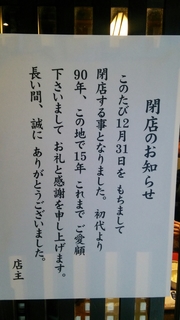 閉店のお知らせ
このたび12月31日を もちまして
閉店する事となりました。初代より
90年、この地で15年 これまで ご愛顧
下さいまして お礼と感謝を申し上げます。
長い間、誠に ありがとうございました。
店主